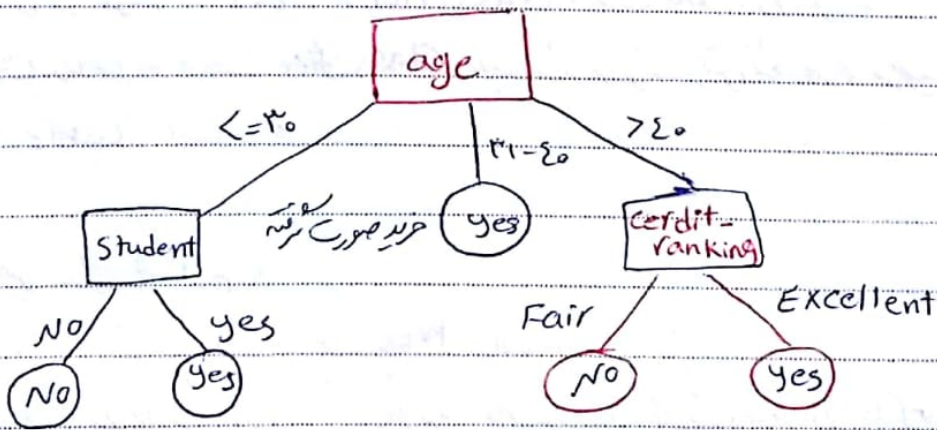 age
<=۳۰
۳۱-۴۰
>۴۰
Student
خرید صورت گرفته
yes
cerdit-
ranking
NO
yes
Fair
Excellent
NO
yes
NO
yes